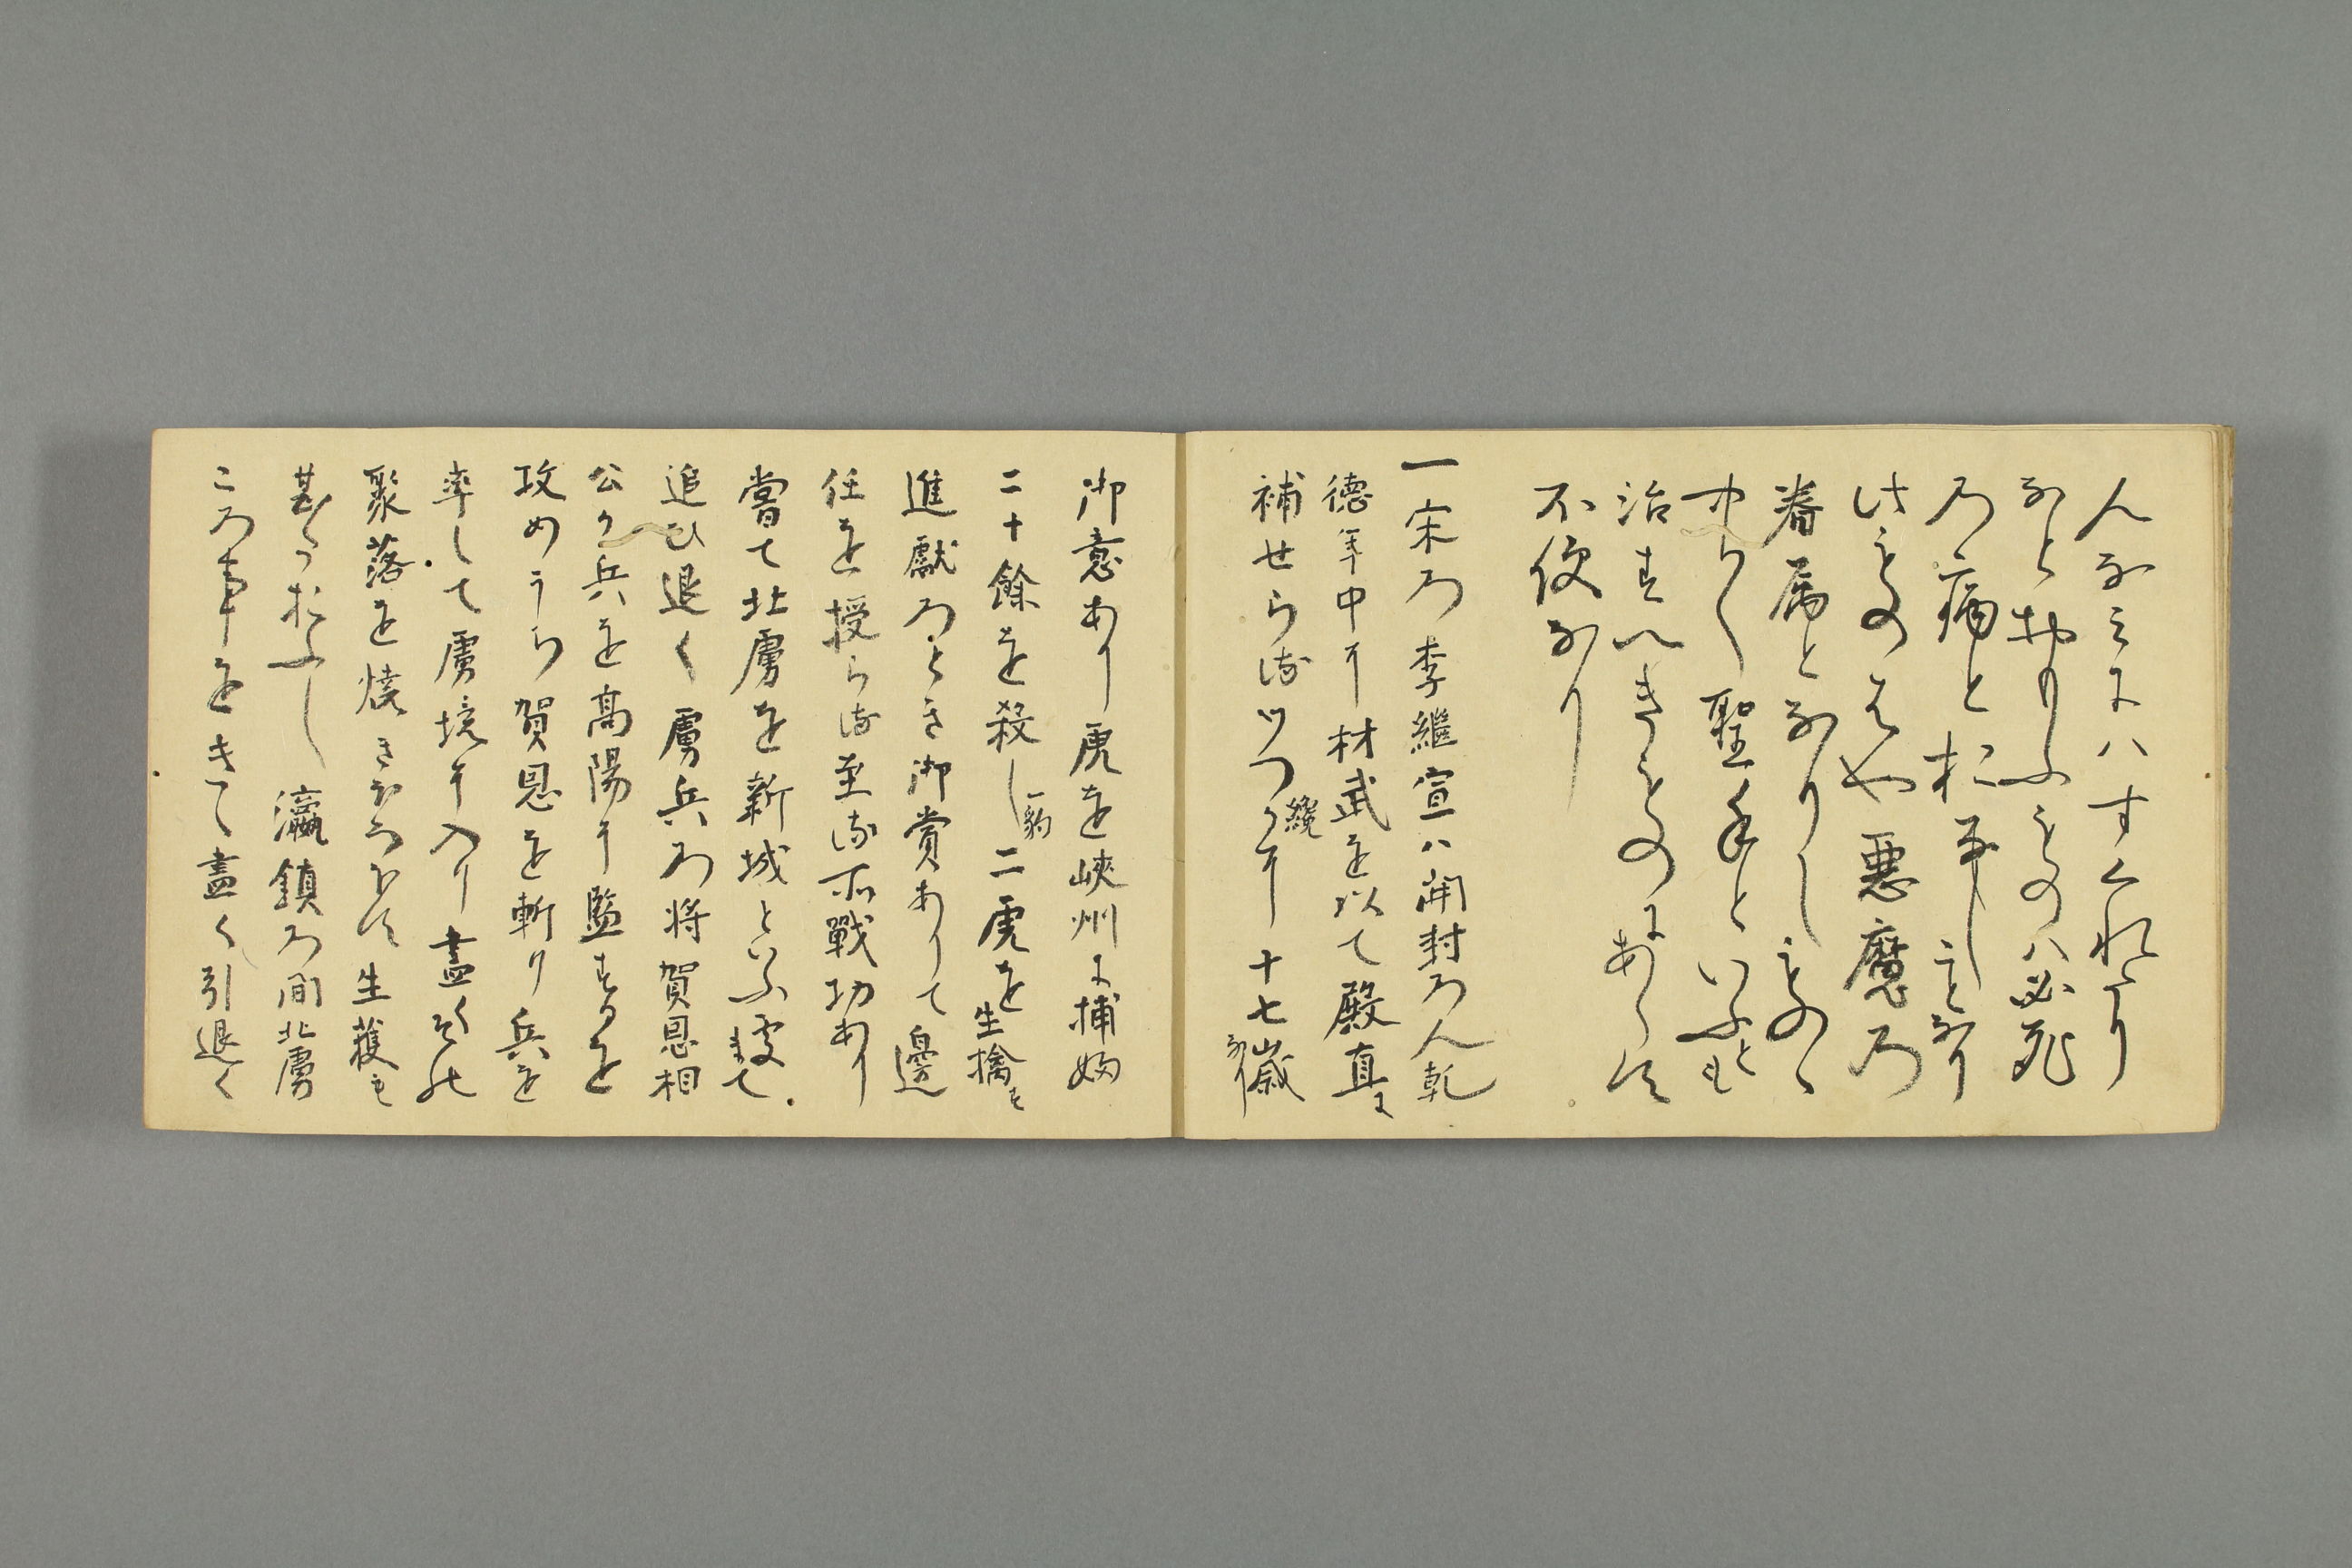 人なミにハすくれたり
なとおもふものハ必死
乃病とおなしことなり
此ものをや悪魔乃
眷属となりしものゝ
中々聖手といふとも
治すへきものにあらす
不便なり
一宋乃李繼宣ハ開封乃人乾
徳年中に材武を以て殿直に
補せらるゝ纔に十七歳なり
御意あり虎を峡州に捕ゆ
二十餘を殺し二虎一豹を生擒も
進獻ろとき御賞ありて邊
任を授らる至る所戰功あり
嘗て北虜を新城といふ處まて
追ひ退く虜兵乃将賀恩相
公か兵を高陽に監するを
攻めうち賀恩を斬り兵を
率して虜境に入り盡く其
聚落を焼きほろほす生獲も
甚たおふし瀛鎮乃間北虜
この事をきて盡く引退く